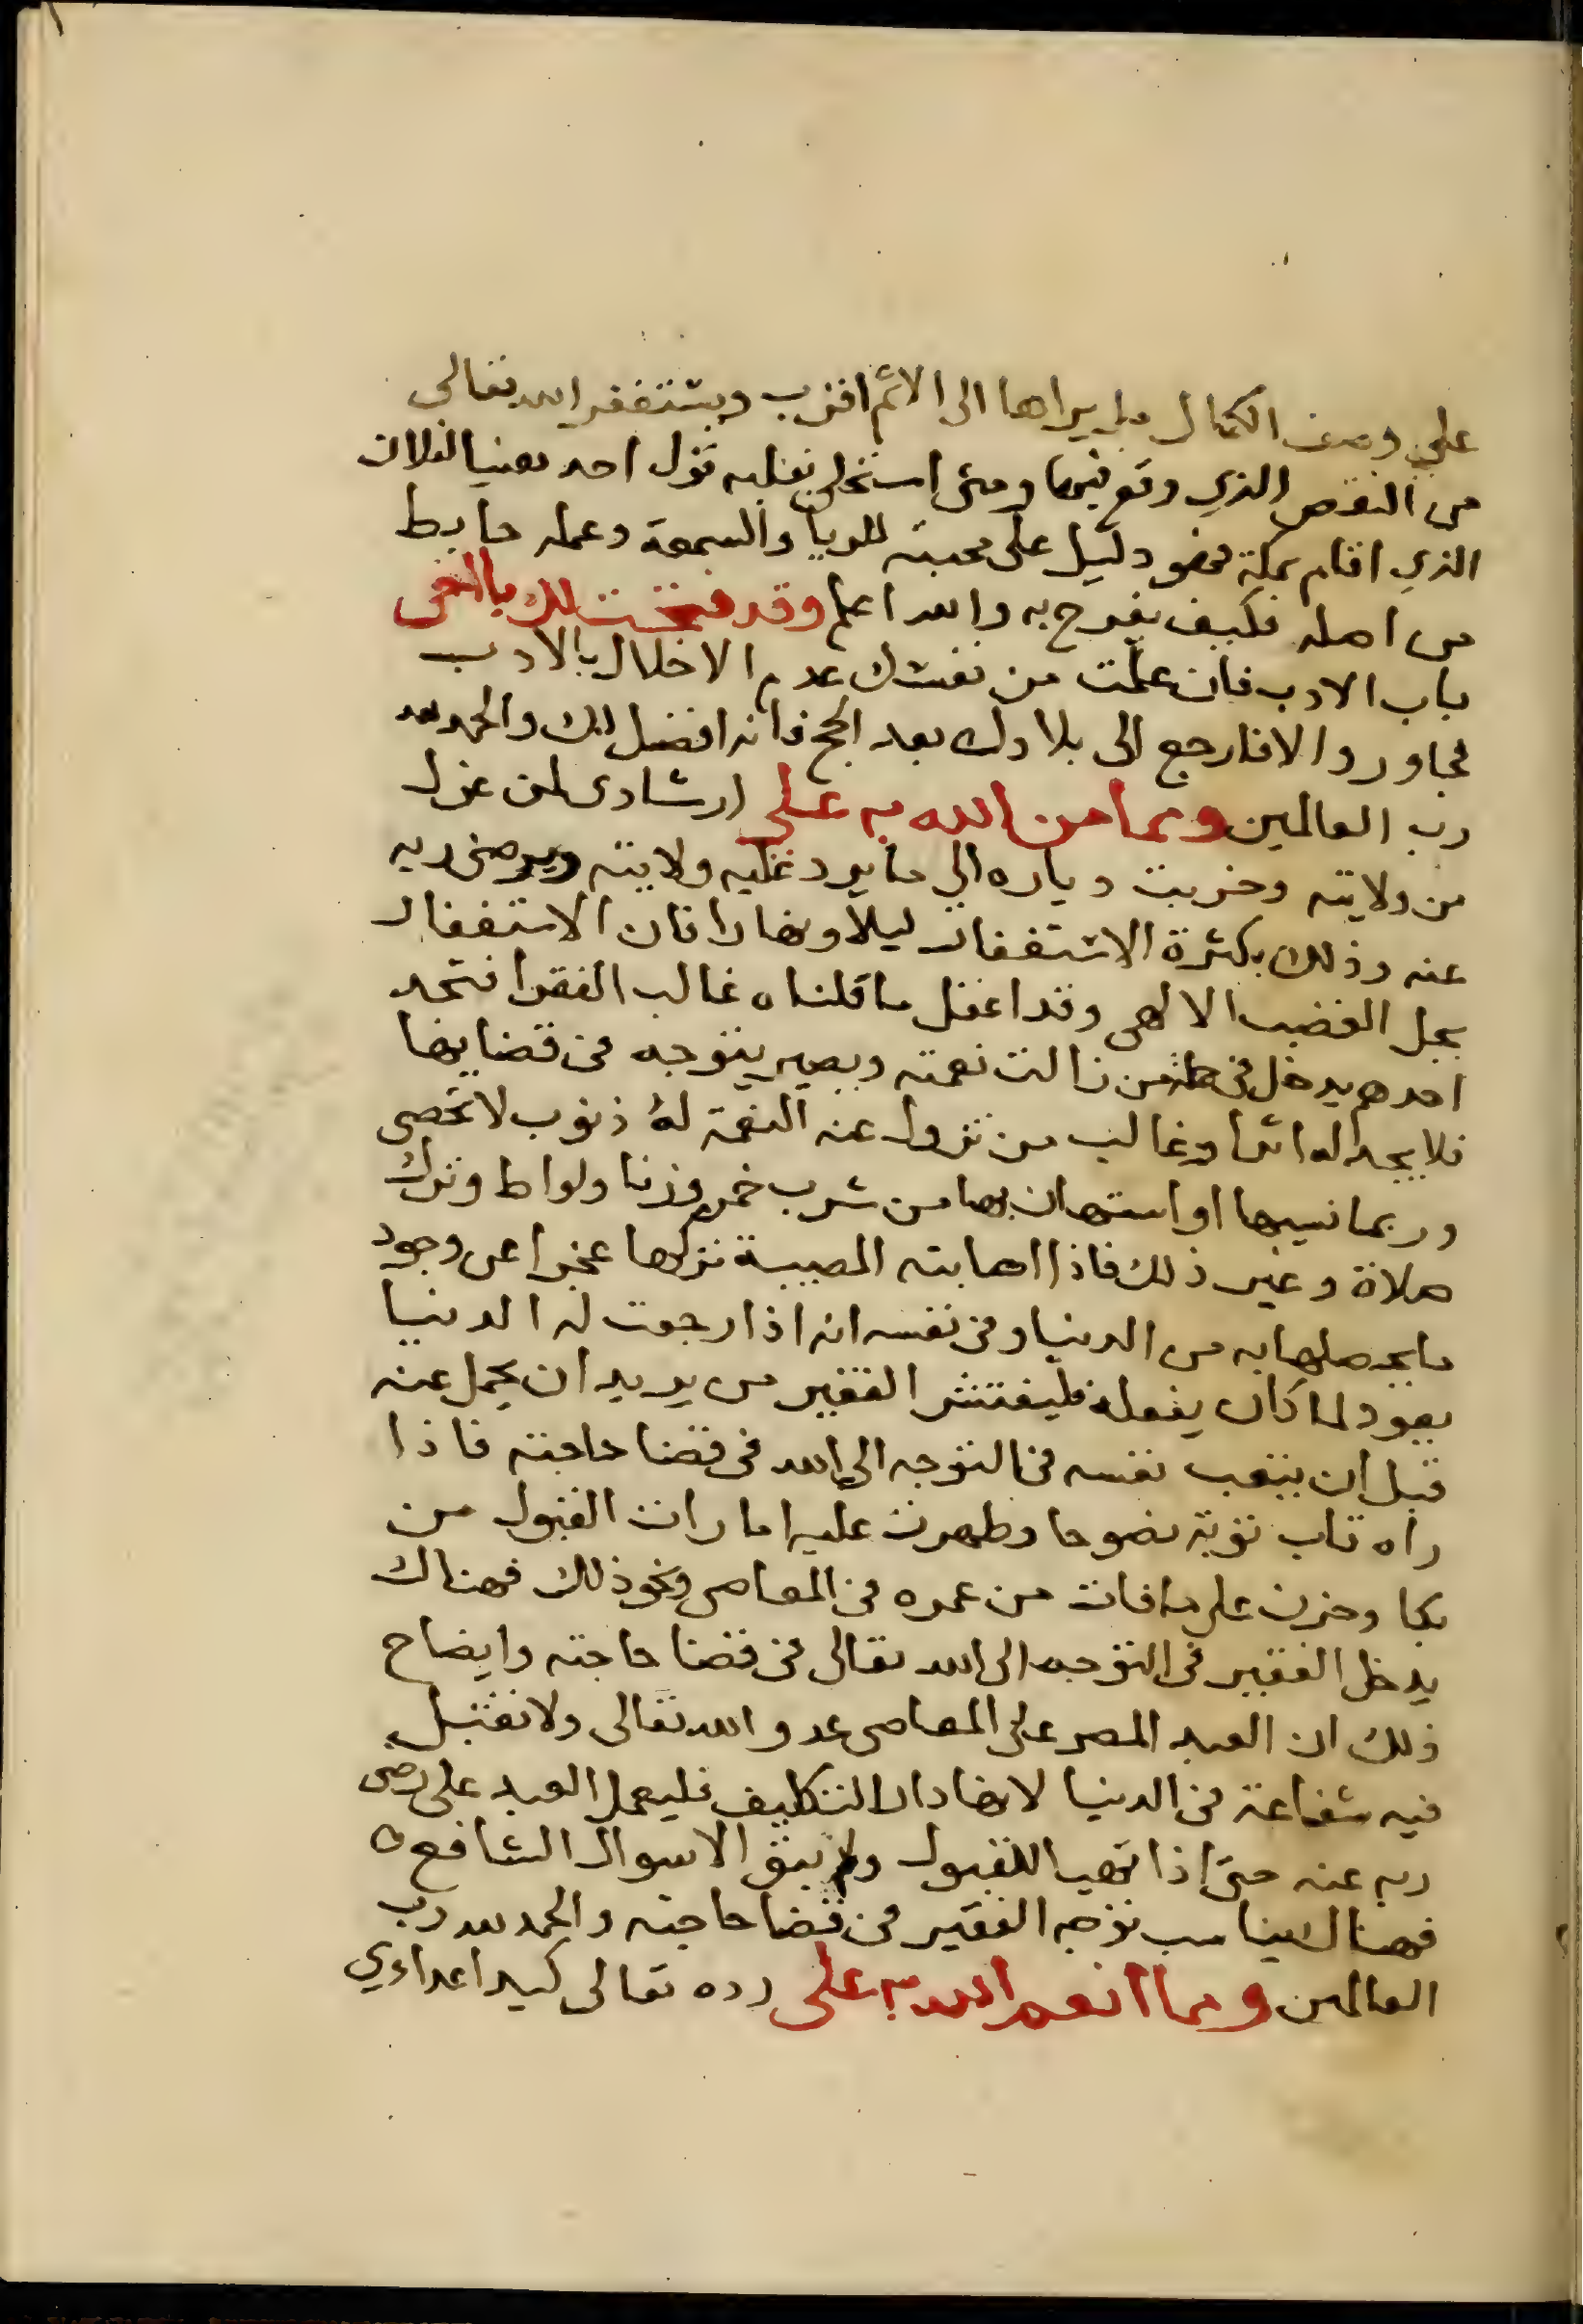 علي وصف الكمال بل يراها الى الاثم اقرب ويستغفر الله تعالى
من النقص الذي وقع فيها ومتى استحلى بقلبه قول احد هنيا لفلان
الذي اقام بمكة فهو دليل على محبته للريا والسمعة وعمله حابط
من اصله فكيف يفرح به والله اعلم وقد فتحت لك يا اخى
باب الادب فان علمت من نفسك عدم الاخلال بالادب
فجاور والا فارجع الى بلادك بعد الحج فانه افضل لك والحمد لله
رب العالمين ومما من الله به على ارشادى لمن عزل
من ولايته وخربت دياره الي ما يرد عليه ولايته ويرضى ربه
عنه وذلك بكثرة الاستغفار ليلا ونهارا فان الاستغفار
يحل الغضب الالهى وقد اغفل ما قلناه غالب الفقرا فتجد
احدهم يدخل فى حملة من زالت نعمته ويصير يتوجه فى قضايها
فلا يجد له اثرا وغالب من تزول عنه النعمة له ذنوب لا تحصى
وربما نسيها او استهان بها من شرب خمر وزنا ولواط وترك
صلاة وغير ذلك فاذا اصابته المصيبة تركها عجزا عن وجود
ما يحصلها به من الدنيا وفى نفسه انه اذا رجعت له الدنيا
يعود لما كان يفعله فليفتش الفقير من يريد ان يحمل عنه
قبل ان يتعب نفسه فى التوجه الى الله فى قضا حاجته فاذا
راه تاب توبة نصوحا وظهرت عليه امارات القبول من
بكا وحزن على ما فات من عمره فى المعاصى ونحو ذلك فهناك
يدخل الفقير فى التوجه الى الله تعالى فى قضا حاجته وايضاح
ذلك ان العبد المصر على المعاصى عدو الله تعالى ولا تقبل
فيه شفاعة فى الدنيا لانها دار التكليف فليعمل العبد على رضى
ربه عنه حتى اذا تهيا للقبول ولم يبق الا سوال الشافع
فهناك يناسب توجه الفقير فى قضا حاجته والحمد لله رب
العالمين ومما انعم الله به على رده تعالى كيد اعداءي